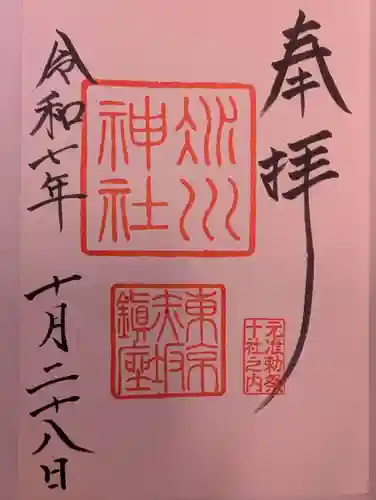 奉拝
氷川
神社
東京
赤坂
鎮座
元准勅祭
十社之内
令和七年
十月二十八日